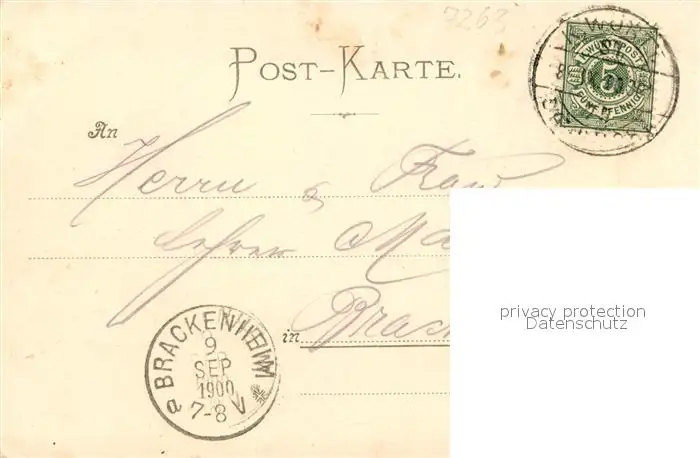 7263
K. WÜRTT. POST
5
FÜNF PFENNIG
POST-KARTE.
An
Herrn & Frau
Lehrer
in
BRACKENHEIM
9
SEP
1900
a 7-8 V
privacy protection
Datenschutz